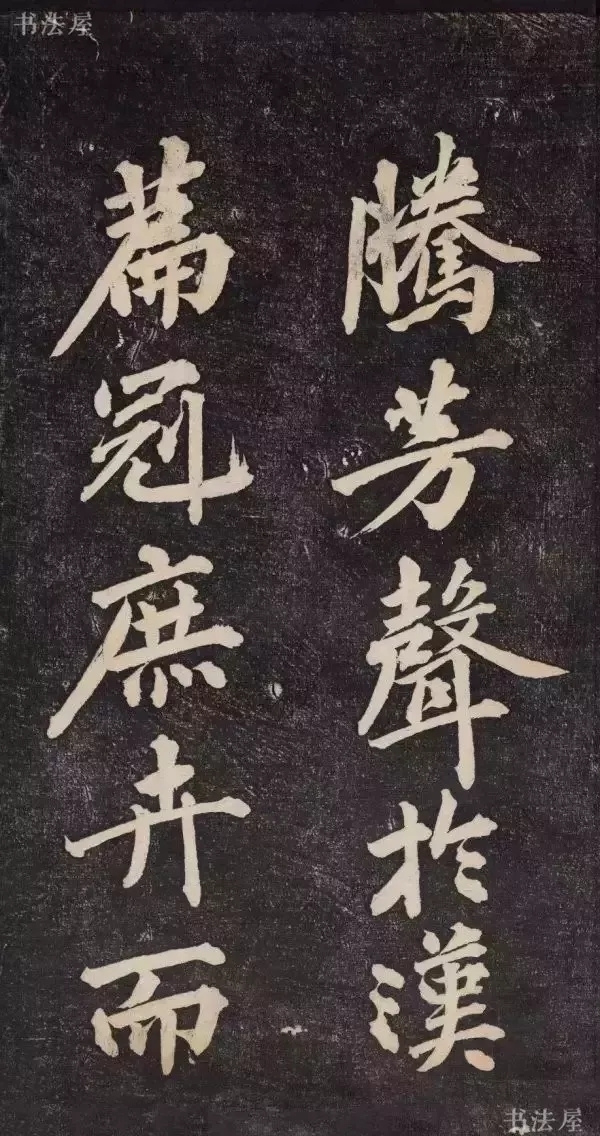 书法屋
騰芳聲於漢
篇冠庶卉而
书法屋